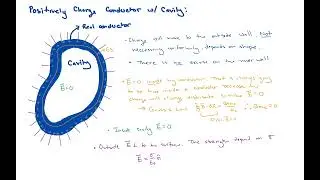 Positively Charge Conductor w/ Cavity:
Real conductor
Cavity
E=0
- Charge will move to the outside wall. Not
necessarily uniformly depends on shape.
- There is no excess on the inner wall
- E=0 made by conductor. That is always going
to be true inside a conductor because the
charge will always distribute to make E=0
- Gauss's Law
- Inside cavity E=0
- Outside E ⊥ to the surface. The strength depend on σ